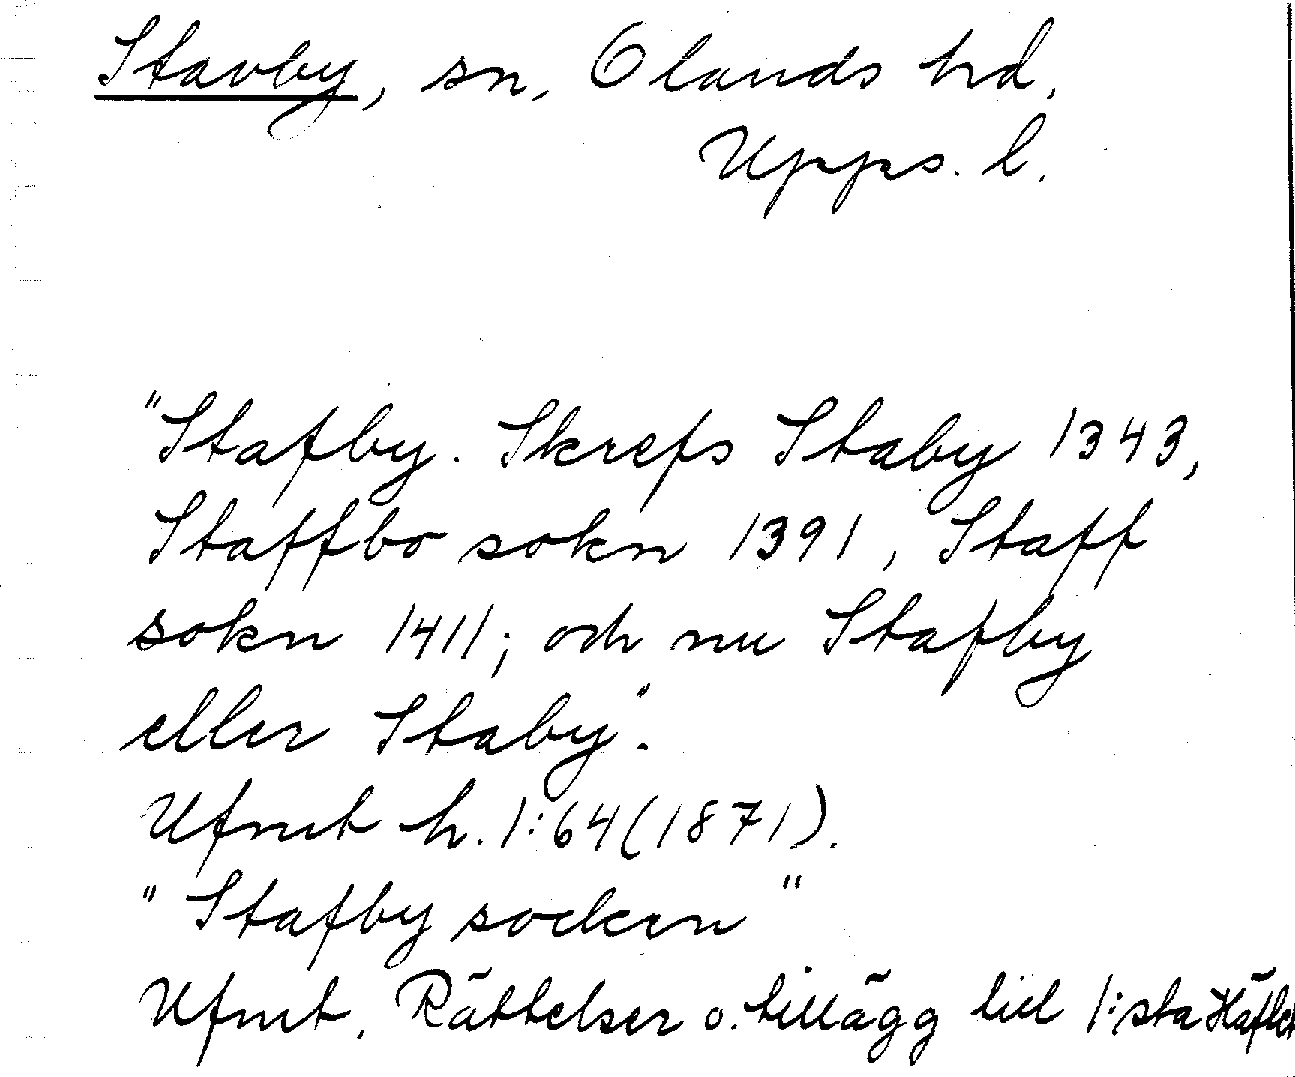 Stavby, sn, Olands hd.
Upps. l.
"Stafby. Skrefs Staby 1343,
Staffbo sokn 1391, Staff
sokn 1411; och nu Stafby
eller Staby".
Ufmt h. 1:64 (1871).
"Stafby socken"
Ufmt. Rättelser o. tillägg till 1:sta Häftet